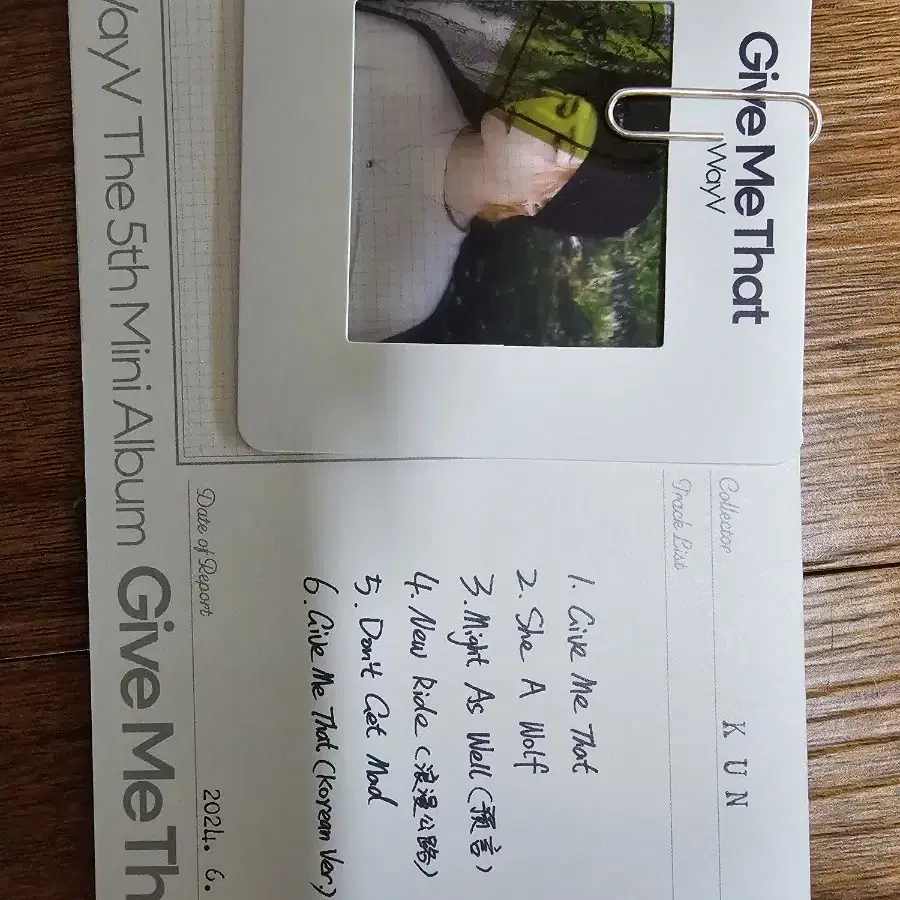 Give Me That
WayV
Collector
K U N
Track List
1. Give Me That
2. She A Wolf
3. Might As Well (预言)
4. New Ride (浪漫公路)
5. Don't Get Mad
6. Give Me That (Korean Ver.)
Date of Report
2024. 6.
WayV The 5th Mini Album Give Me Th